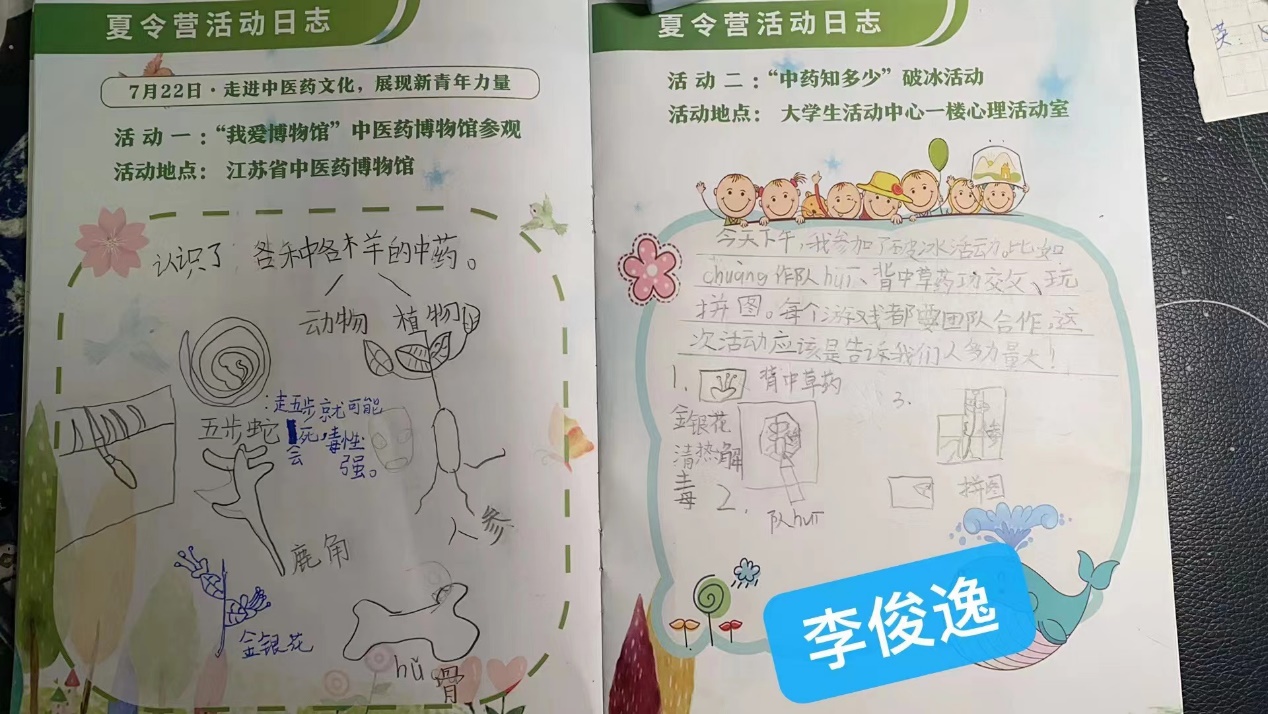 夏令营活动日志
7月22日·走进中医药文化，展现新青年力量
活动一：“我爱博物馆”中医药博物馆参观
活动地点： 江苏省中医药博物馆
认识了各种各样的中药。
动物 植物
五步蛇
：走五步就可能
会死，毒性
强。
参
鹿角
金银花
hǔ骨
夏令营活动日志
活动二：“中药知多少”破冰活动
活动地点： 大学生活动中心一楼心理活动室
今天下午，我参加了破冰活动。比如
chuàng作队huī、背中草药功效、玩
拼图。每个游戏都要团队合作，这
次活动应该是告诉我们人多力量大！
1. 背中草药
金银花
清热解
毒
2.
队huī
3.
拼图
李俊逸
英：